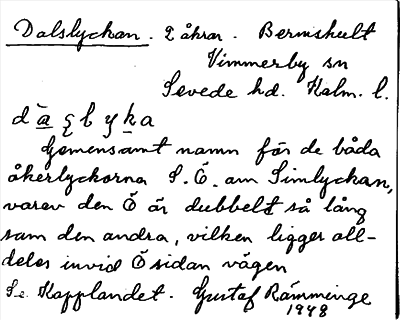 Dalslyckan. 2 åkrar. Bermshult
Vimmerby sn
Sevede hd. Kalm. l.
Gemensamt namn för de båda
åkerlyckorna S. Ö. om Simlyckan,
varav den Ö är dubbelt så lång
som den andra, vilken ligger all-
deles invid Ö sidan vägen
Se. Kapplandet. Gustaf Rämminge
1948